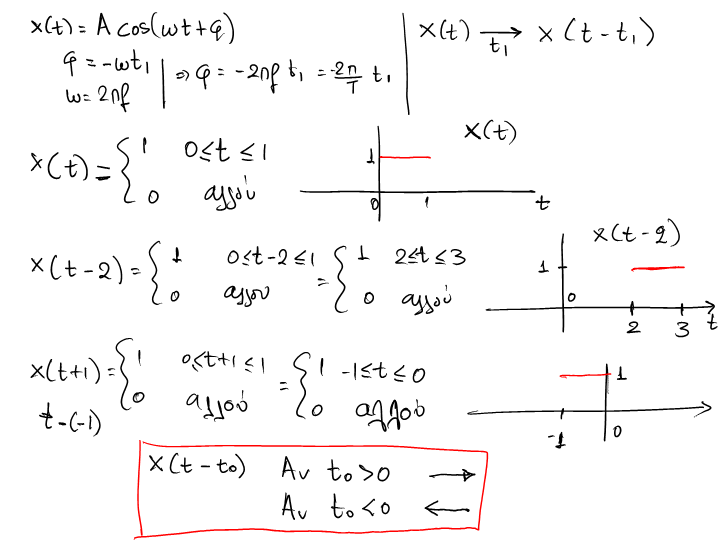 x(t) = A cos(ωt+φ)
φ = -ωt₁
ω = 2πf
⇒ φ = -2πf t₁ = -2π/T t₁
x(t) →t₁ x(t-t₁)
x(t) = { 1 0≤t≤1
0 αλλού
x(t)
1
0 1 t
x(t-2) = { 1 0≤t-2≤1 = { 1 2≤t≤3
0 αλλού 0 αλλού
x(t-2)
1
0 2 3 t
x(t+1) = { 1 0≤t+1≤1 = { 1 -1≤t≤0
0 αλλού 0 αλλού
t-(-1)
1
-1 0
x(t-t₀) Αν t₀>0 →
Αν t₀<0 ←